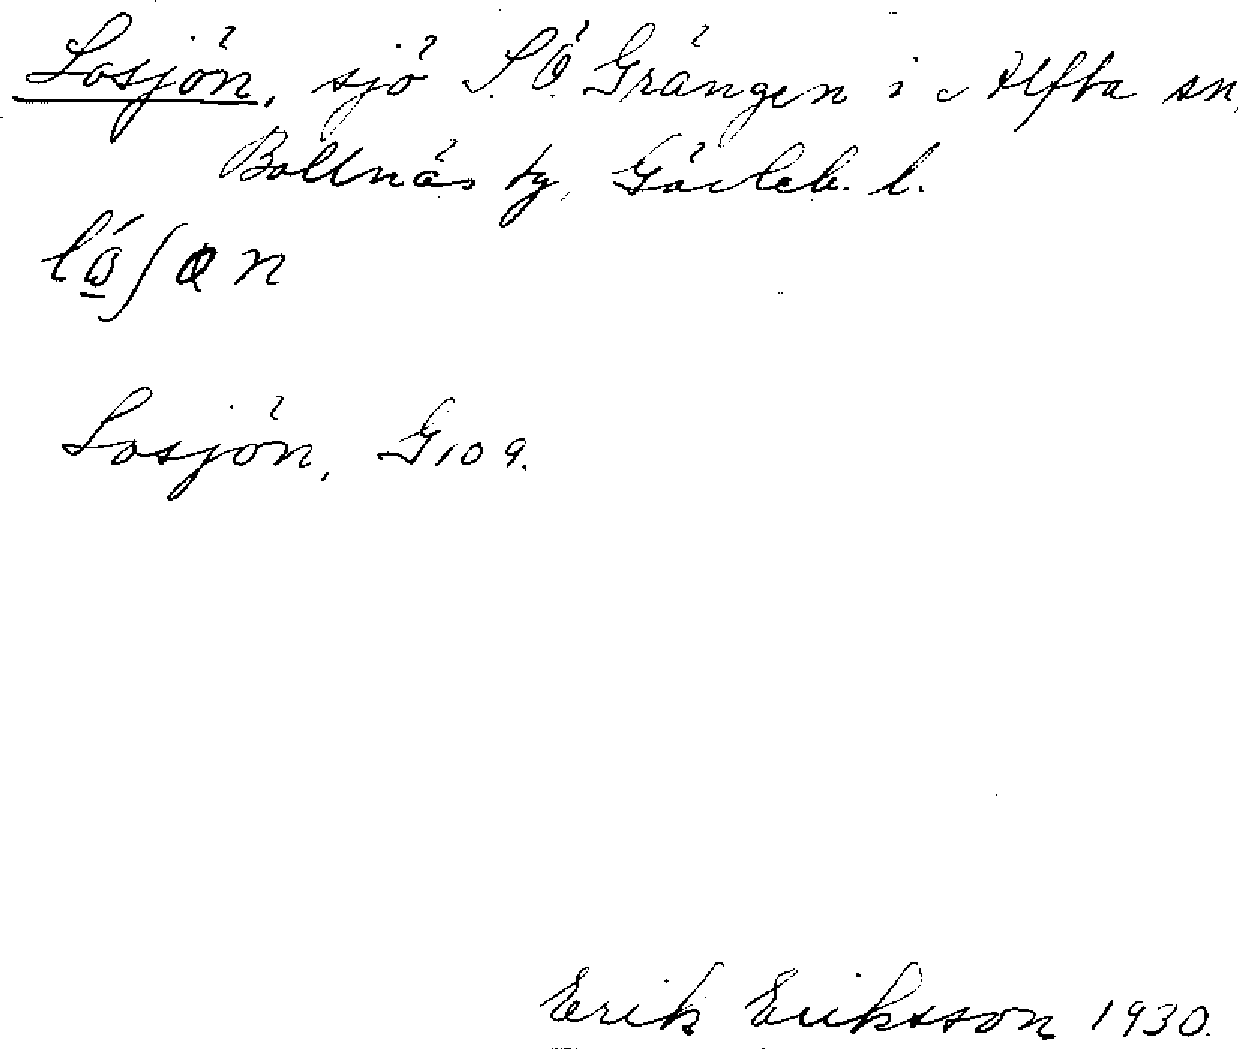 Losjön, sjö S.Ö. Grängen i Alfta sn,
Bollnäs tg, Gävleb. l.
Losjön, G 109.
Erik Eriksson 1930.